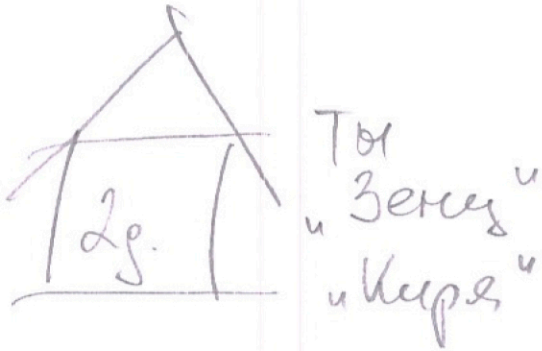 2д.
Ты
"Зенц"
"Киря"